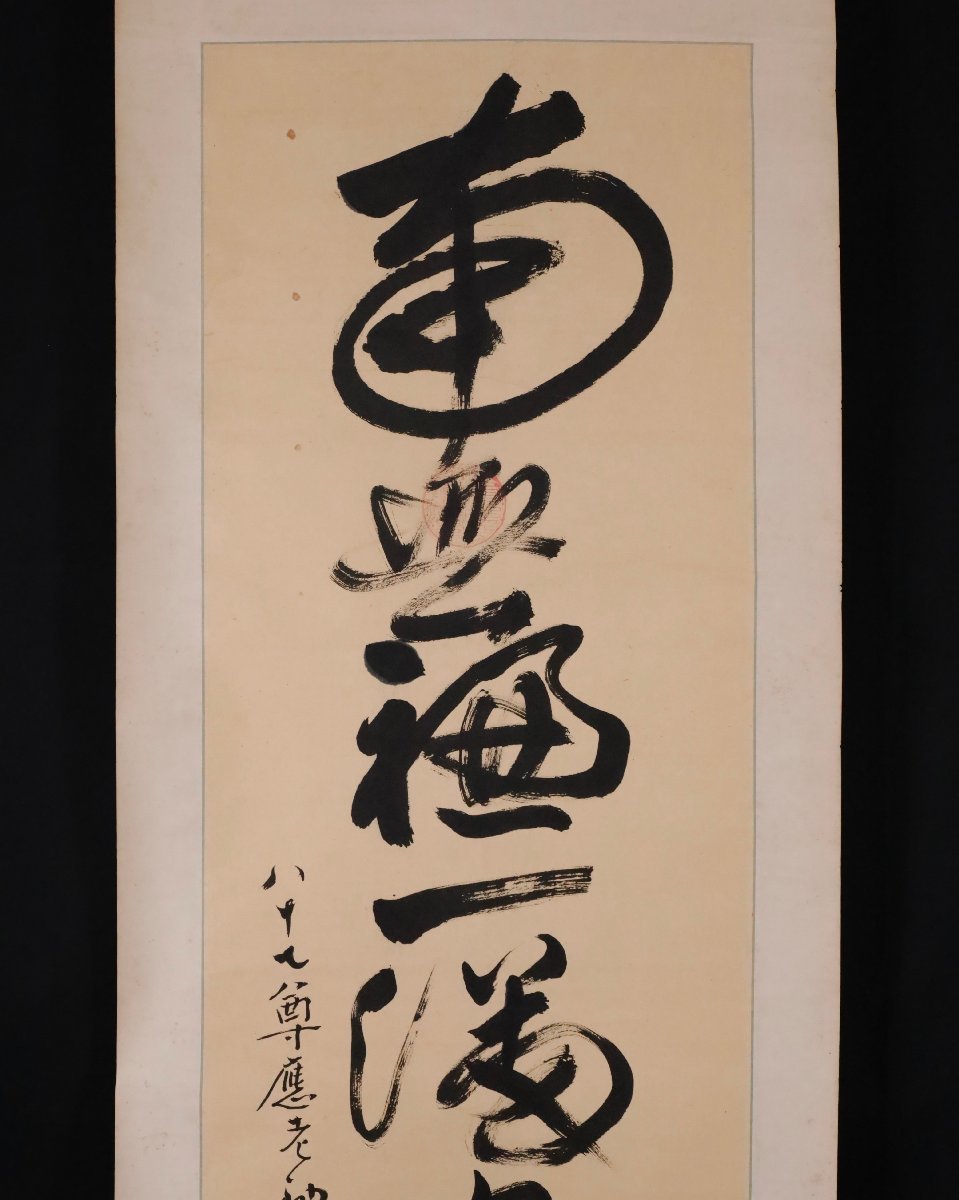 南無福一満
八十七尊應老衲